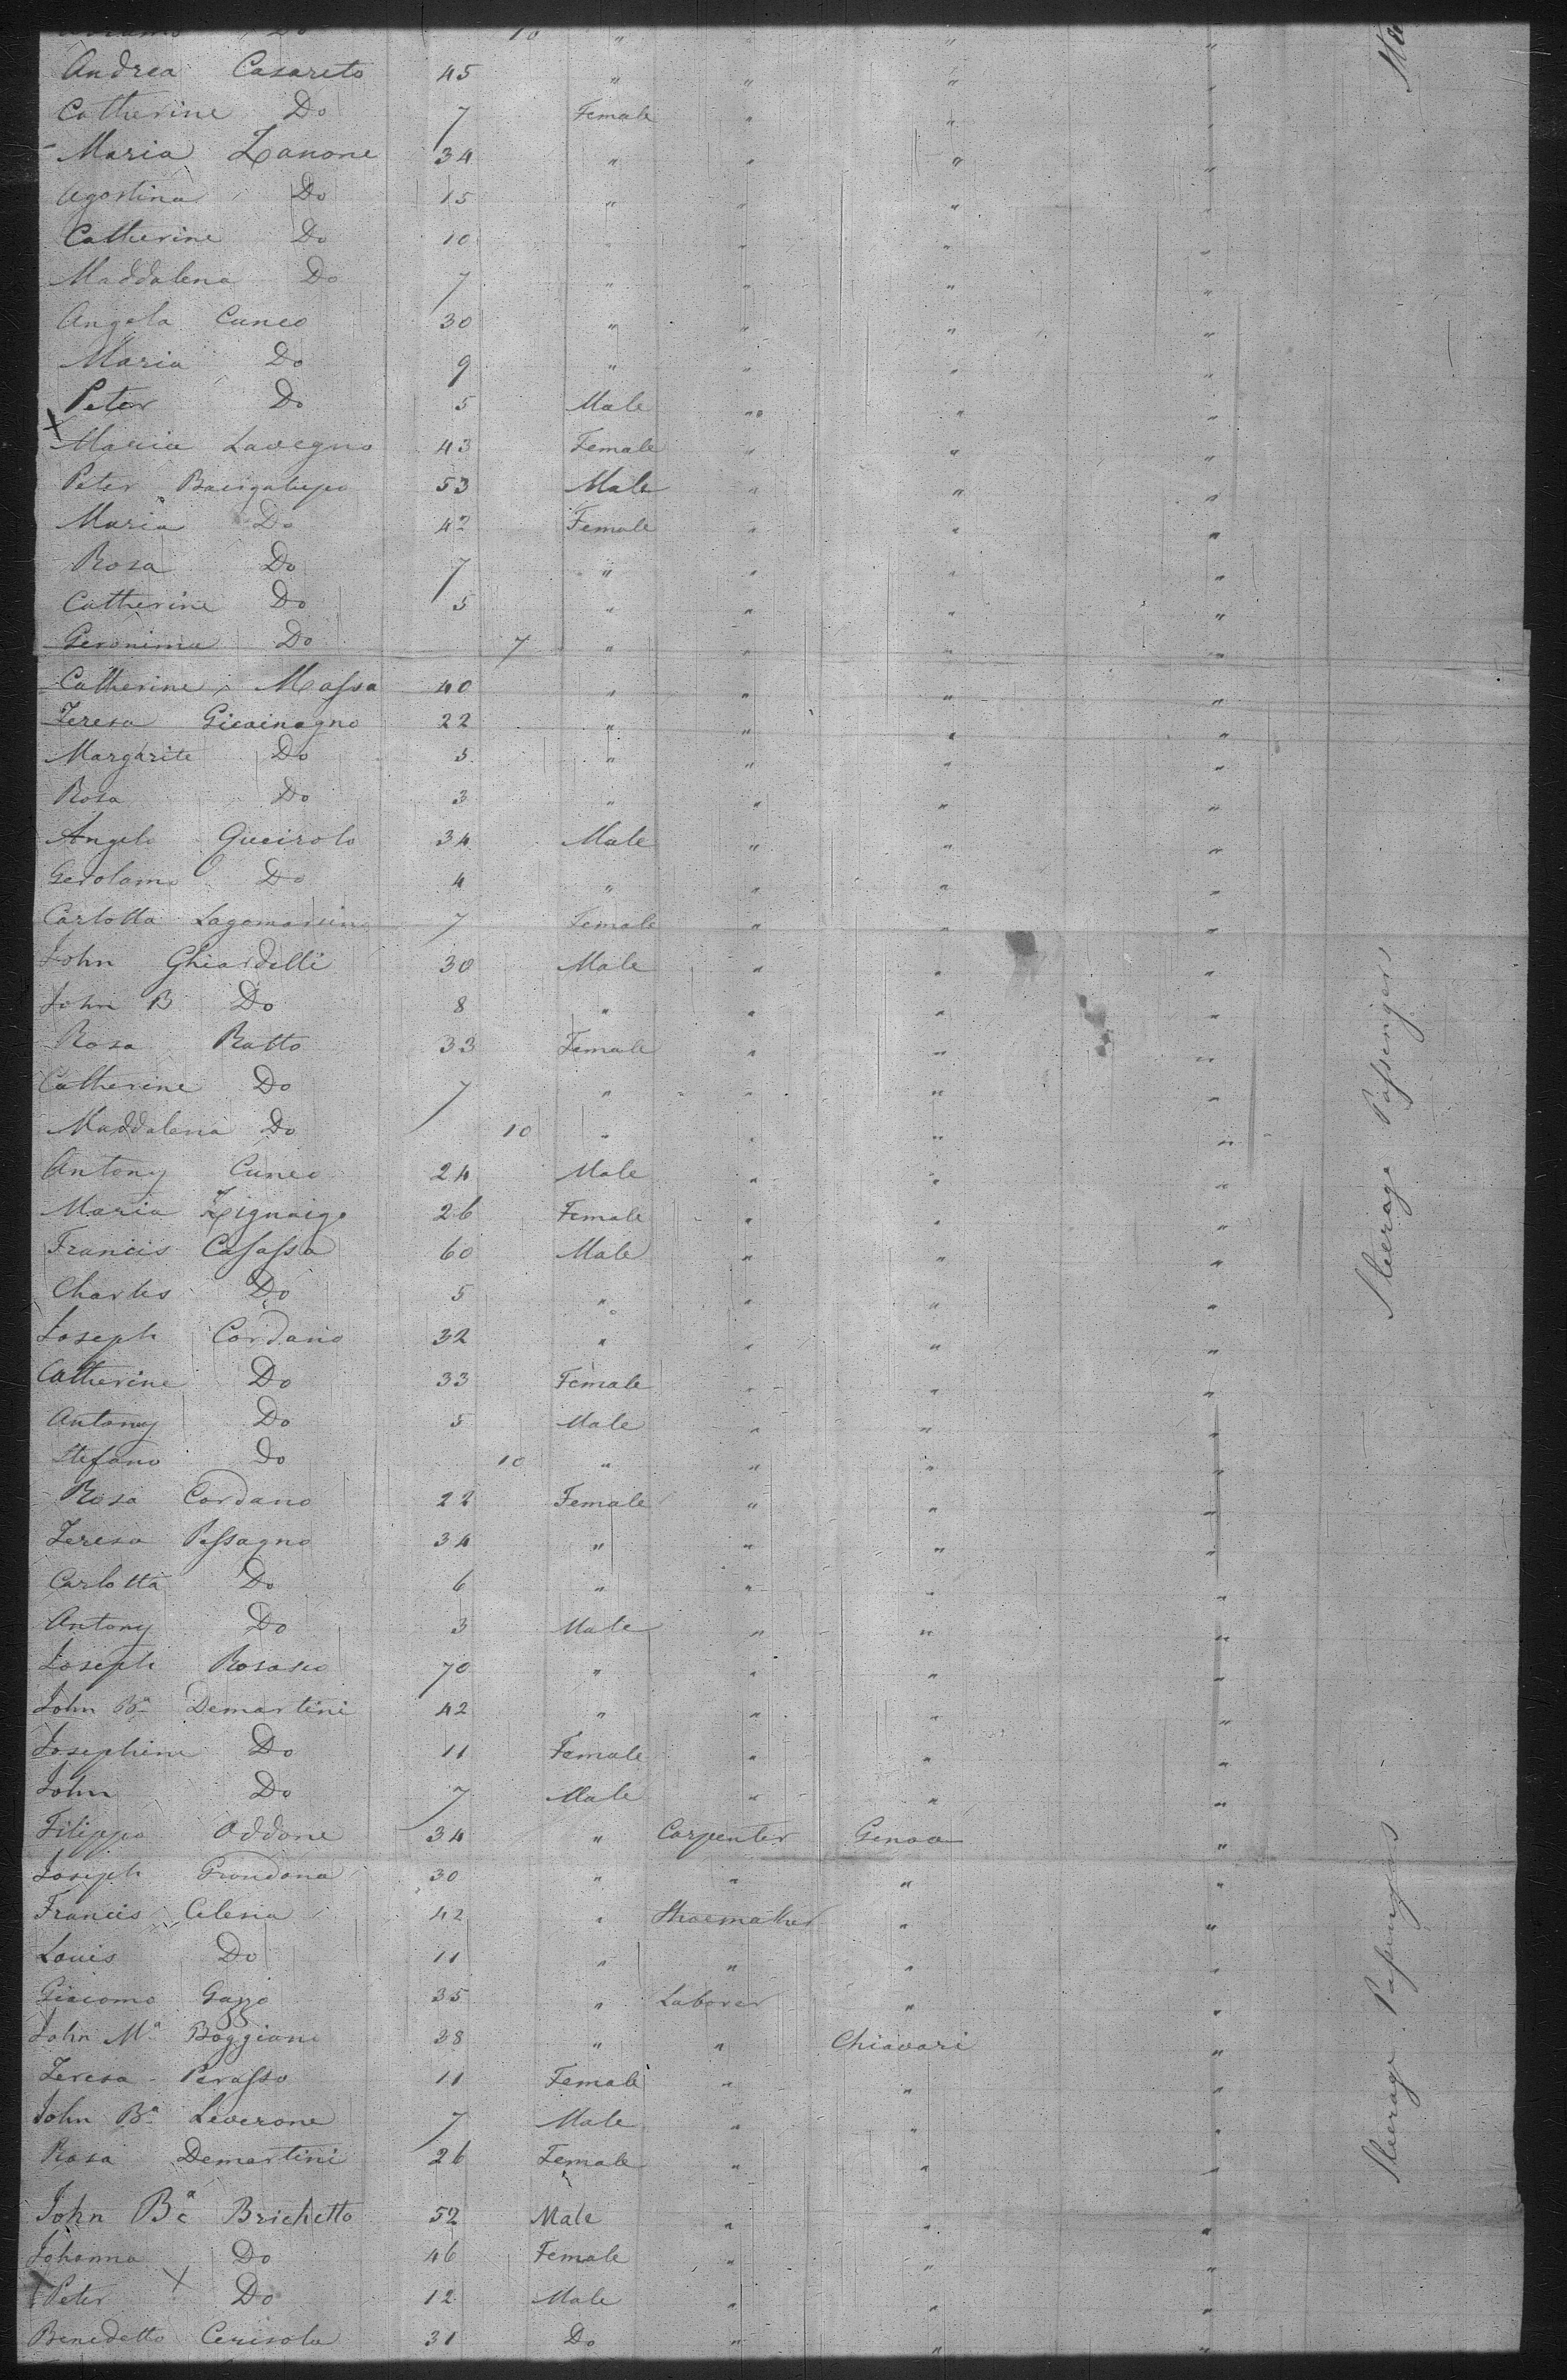 Do 10 " " " "
Andrea Casareto 45 " " " "
Catherine Do 7 Female " " "
Maria Zanone 34 " " " "
Agostina Do 15 " " " "
Catherine Do 10 " " " "
Maddalena Do 7 " " " "
Angela Cuneo 30 " " " "
Maria Do 9 " " " "
Peter Do 5 Male " " "
X Maria Lavegno 43 Female " " "
Peter Bacigalupo 53 Male " " "
Maria Do 42 Female " " "
Rosa Do 7 " " " "
Catherine Do 5 " " " "
Geronima Do 7 " " " "
Catherine Massa 40 " " " "
Teresa 22 " " " "
Margarite Do 5 " " " "
Rosa Do 3 " " " "
Angelo Queirolo 34 Male " " "
Gerolamo Do 4 " " " "
Carlotta Lagomarsino 7 Female " " "
John Ghiardelli 30 Male " " "
John B Do 8 " " " "
Rosa Ratto 33 Female " " "
Catherine Do 7 " " " "
Maddalena Do 10 " " " "
Antony Cuneo 24 Male " " "
Maria Zignaigo 26 Female " " "
Francis Casassa 60 Male " " "
Charles Do 5 " " " "
Joseph Cordano 32 " " " "
Catherine Do 33 Female " " "
Antony Do 5 Male " " "
Stefano Do 10 " " " "
Rosa Cordano 22 Female " " "
Teresa Pessagno 34 " " " "
Carlotta Do 6 " " " "
Antony Do 3 Male " " "
Joseph Rosasco 70 " " " "
John Bª Demartini 42 " " " "
Josephine Do 11 Female " " "
John Do 7 Male " " "
Filippo Oddone 34 " Carpenter Genoa "
Joseph Grondona 30 " " " "
Francis Celeria 42 " Shoemaker " "
Louis Do 11 " " " "
Giacomo 35 " Laborer " "
John Mª Boggiano 38 " " Chiavari "
Teresa Perasso 11 Female " " "
John Bª Leverone 7 Male " " "
Rosa Demartini 26 Female " " "
John Bª Brichetto 52 Male " " "
Johanna Do 46 Female " " "
X Peter X Do 12 Male " " "
Benedetto Cerisola 31 Do " " "
Steerage Passengers
Steerage Passengers